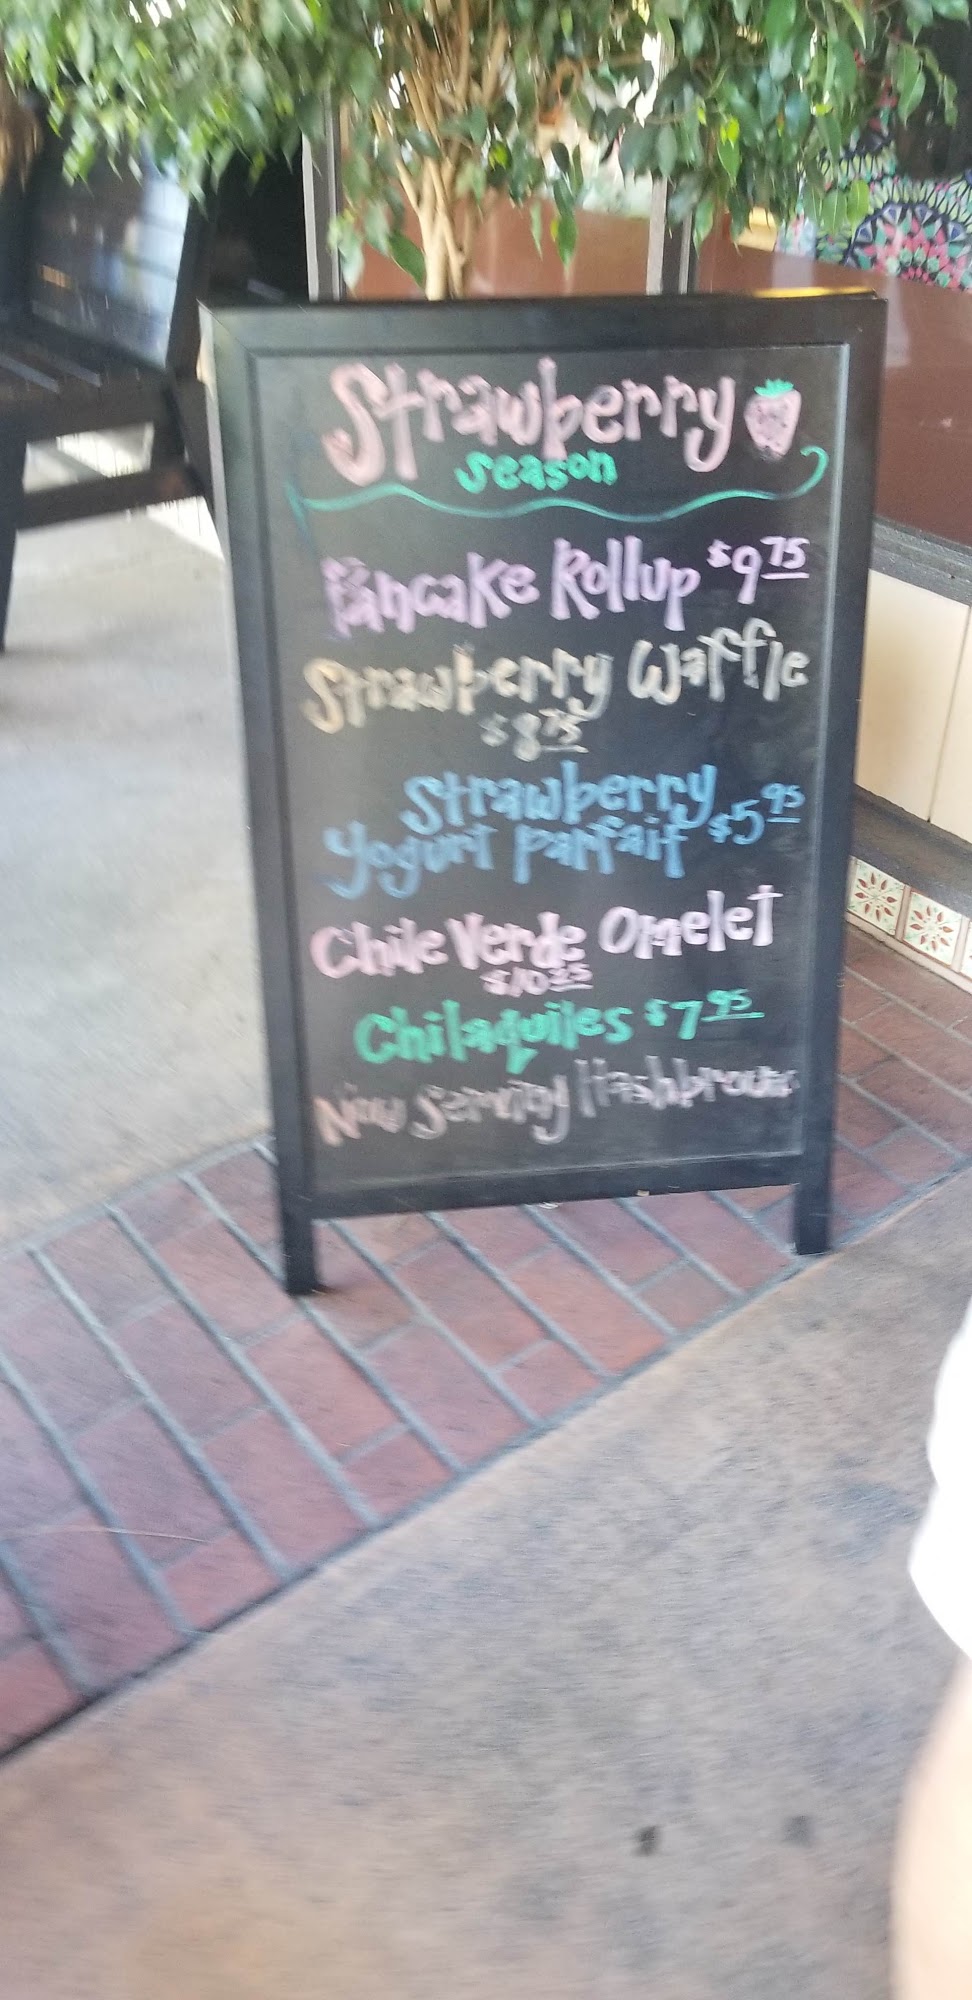 Strawberry
Season
Pancake Rollup $9.75
Strawberry Waffle
$8.75
Strawberry
Yogurt Parfait $5.95
Chile Verde Omelet
$10.25
Chilaquiles $7.95
Now Serving Hashbrowns